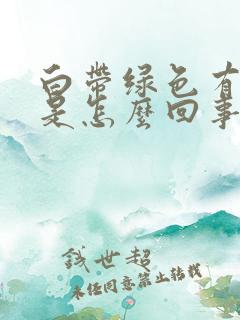 白带绿色有
是怎麼回事
钱世超
未经同意禁止转载